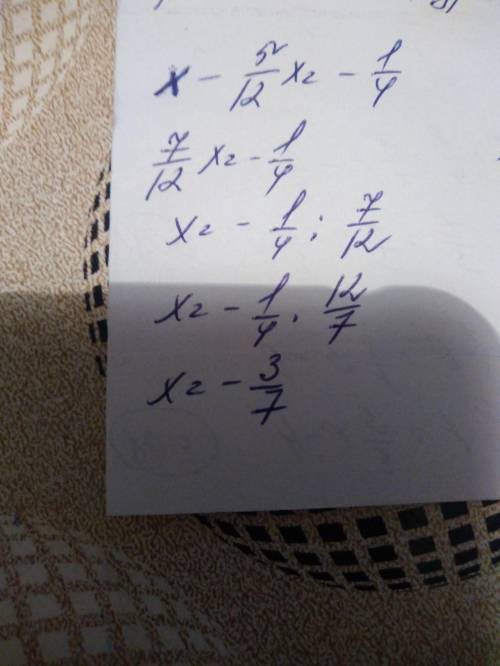 x - 5/12 x = - 1/4
7/12 x = - 1/4
x = - 1/4 : 7/12
x = - 1/4 · 12/7
x = - 3/7